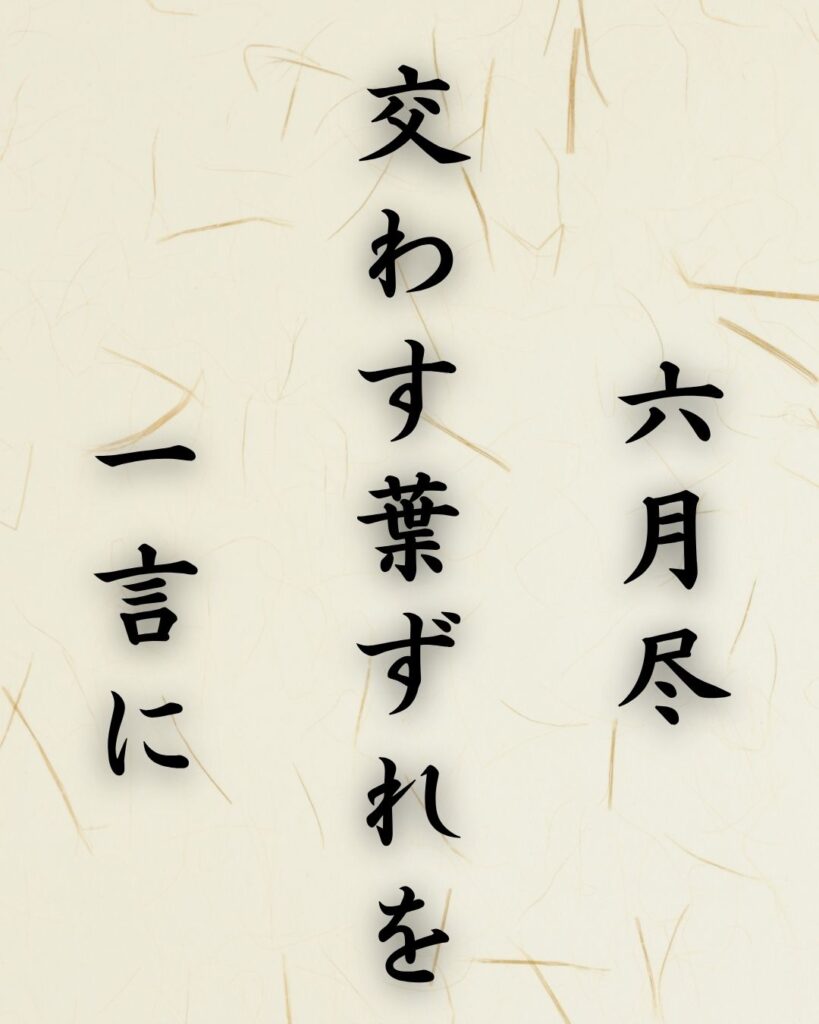 六月尽
交わす葉ずれを
一言に